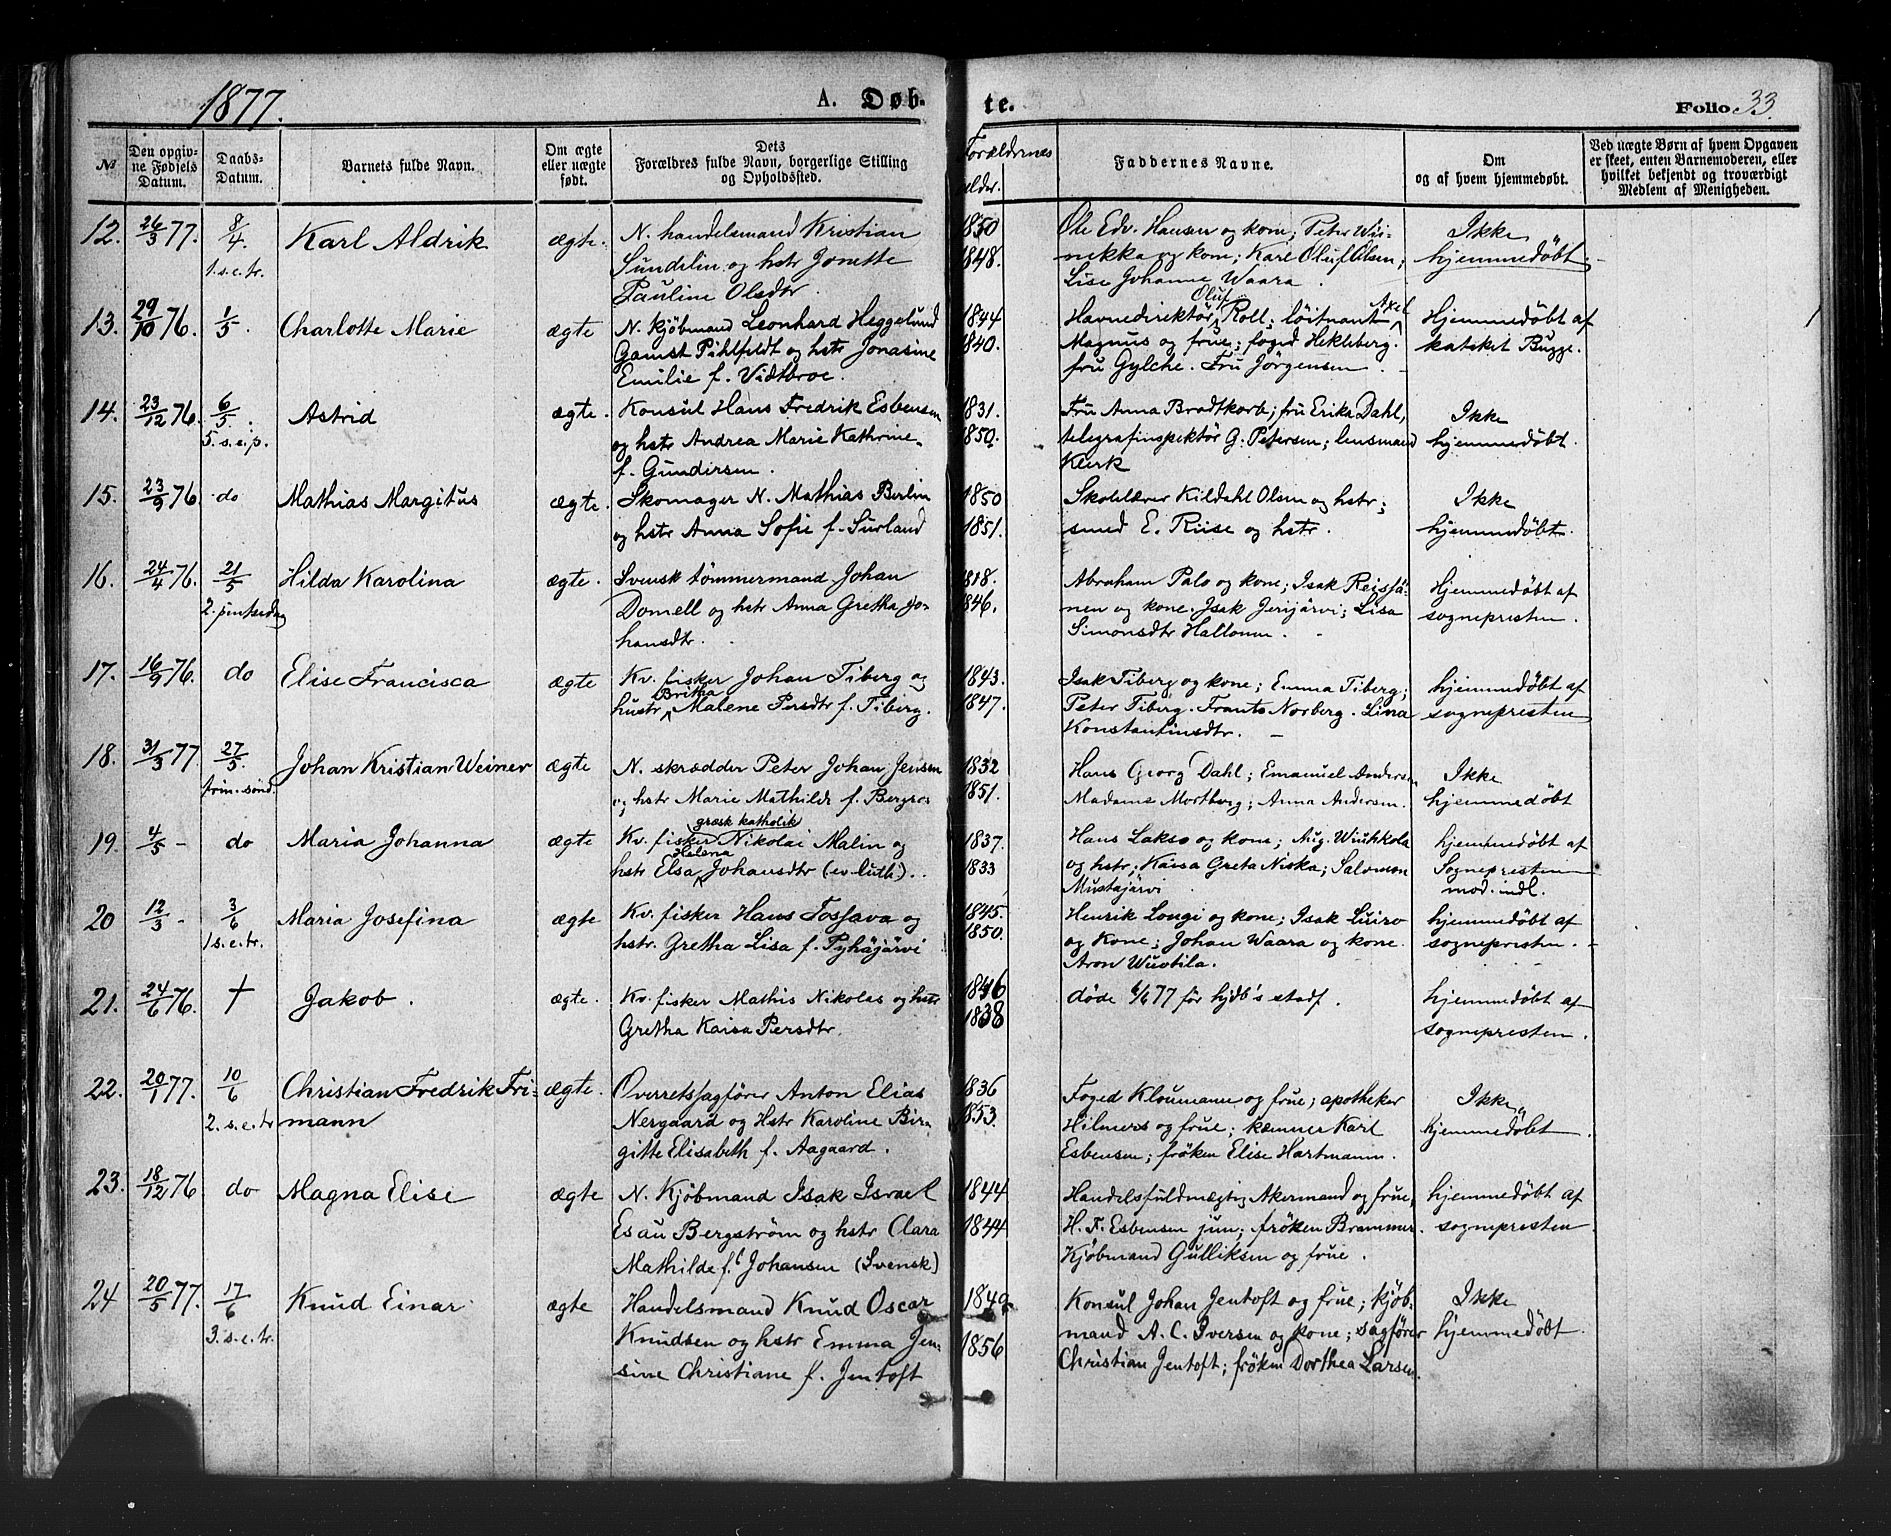 1877.
A. Døb-
te.
Folio 33.
№
Den opgiv-
ne Fødsels
Datum.
Daabs-
Datum.
Barnets fulde Navn.
Om ægte
eller uægte
født.
Dets
Forældres fulde Navn, borgerlige Stilling
og Opholdssted.
Forældrenes
Alder.
Faddernes Navne.
Om
og af hvem hjemmedøbt.
Ved uægte Børn af hvem Opgaven
er skeet, enten Barnemoderen, eller
hvilket bekjendt og troværdigt
Medlem af Menigheden.
12. 26/3 77. 8/4 1.s.e.tr. Karl Aldrik ægte.
N. handelsmand Kristian
Sundelin og hstr Jonette
Pauline Olsdtr
1850
1848.
Ole Edv. Hansen og kone; Peter Wii-
nikka og kone; Karl Oluf Olsen;
Lise Johanne Waara.
Ikke
hjemmedøbt.
13. 29/10 76. 1/5 Charlotte Marie ægte
N. Kjöbmand Leonhard Heggelund
Gamst Pihlfeldt og hstr Jonasine
Emilie f. Vidtbroe.
1844
1840.
Havnedirektör Oluf Roll; löitnant Axel
Magnus og frue; foged Hekleberg.
fru Gylche. Fru Jörgensen.
Hjemmedøbt af
kateket Bugge.
14. 23/12 76. 6/5 5.s.e.p. Astrid ægte.
Konsul Hans Fredrik Esbensen
og hstr Andrea Marie Kathrine
f. Gundersen.
1831.
1850.
Fru Anna Brodtkorb; fru Erika Dahl,
telegrafinspektör G. Petersen; lensmand
Klerk
Ikke
hjemmedøbt.
15. 23/9 76. do Mathias Margitus ægte.
Skomager N. Mathias Berlin
og hstr Anna Sofie f. Surland
1850
1851.
Skolelærer Kildahl Olsen og hstr;
smed E. Riise og hstr.
Ikke
hjemmedøbt.
16. 24/4 76. 21/5 2. pintsedag Hilda Karolina ægte.
Svensk tömmermand Johan
Domell og hstr Anna Gretha Jo-
hansdtr.
1818.
1846.
Abraham Palo og kone; Isak Reisjä-
nen og kone. Isak Jerijärvi; Lisa
Simonsdtr Hallonen.
Hjemmedøbt af
sognepresten.
17. 16/9 76. do Elise Francisca ægte
Kv. fisker Johan Tiberg og
hustr Britha Malene Persdtr f. Tiberg.
1843.
1847.
Isak Tiberg og kone; Emma Tiberg;
Peter Tiberg. Frants Norberg. Lina
Konstantinsdtr.
hjemmedøbt af
sognepresten
18. 31/3 77. 27/5. trin. sönd. Johan Kristian Weiner ægte
N. skrædder Peter Johan Jensen
og hstr Marie Mathilde f. Bergro-
1832
1851.
Hans Georg Dahl; Emanuel Andersen
Madame Mortberg; Anna Andersen.
Ikke
hjemmedøbt
19. 4/5 - do Maria Johanna ægte
græsk katholik
Kv. fisker Nikolai Malin og
hstr Elsa Helena Johansdtr (ev. luth.).
1837.
1833
Hans Lakso og kone; Aug. Wiukkola
og hstr; Kaisa Greta Niska; Salomon
Mustajärvi
hjemmedøbt af
Sognepresten
mod. indl.
20 12/3 - 3/6 1 s.e.tr. Maria Josefina ægte
Kv. fisker Hans Tosfava og
hstr. Gretha Lisa f. Pyhäjärvi
1845.
1850.
Henrik Longi og kone; Isak Luiro
og Kone; Johan Waara og kone.
Aron Wuotila.
hjemmedøbt af
sognepresten.
21. 24/6 76. † Jakob. ægte.
Kv. fisker Mathis Nikolas og hstr
Gretha Kaisa Persdtr.
1846
1838
døde 6/6 77 för hjdb's stadf.
hjemmedøbt af
sognepresten.
22. 20/1 77. 10/6 2. s.e.tr Christian Fredrik Fri-
mann ægte.
Overretssagförer Anton Elias
Nergaard og Hstr Karoline Bir-
gitte Elisabeth f. Aagaard.
1836
1853.
Foged Kloumann og frue; apotheker
Hilmers og frue; kæmner Karl
Esbensen; fröken Elise Hartmann.
Ikke
hjemmedøbt.
23. 18/12 76 do Magna Elise ægte
N. Kjöbmand Isak Israel
Esau Bergström og hstr Clara
Mathilde f. Johansen (Svensk)
1844
1844
Handelsfuldmægtig Akermand og frue,
H. F. Esbensen jun; fröken Brammer.
Kjöbmand Gulliksen og frue.
hjemmedøbt af
sognepresten.
24 20/5 77. 17/6 3. s.e.tr. Knud Einar ægte
Handelsmand Knud Oscar
Knudsen og hstr Emma Jen-
sine Christiane f. Jentoft
1849
1856
Konsul Johan Jentoft og frue; kjöb-
mand A. C. Iversen og kone; sagförer
Christian Jentoft; fröken Dorthea Larsen.
Ikke
hjemmedøbt.